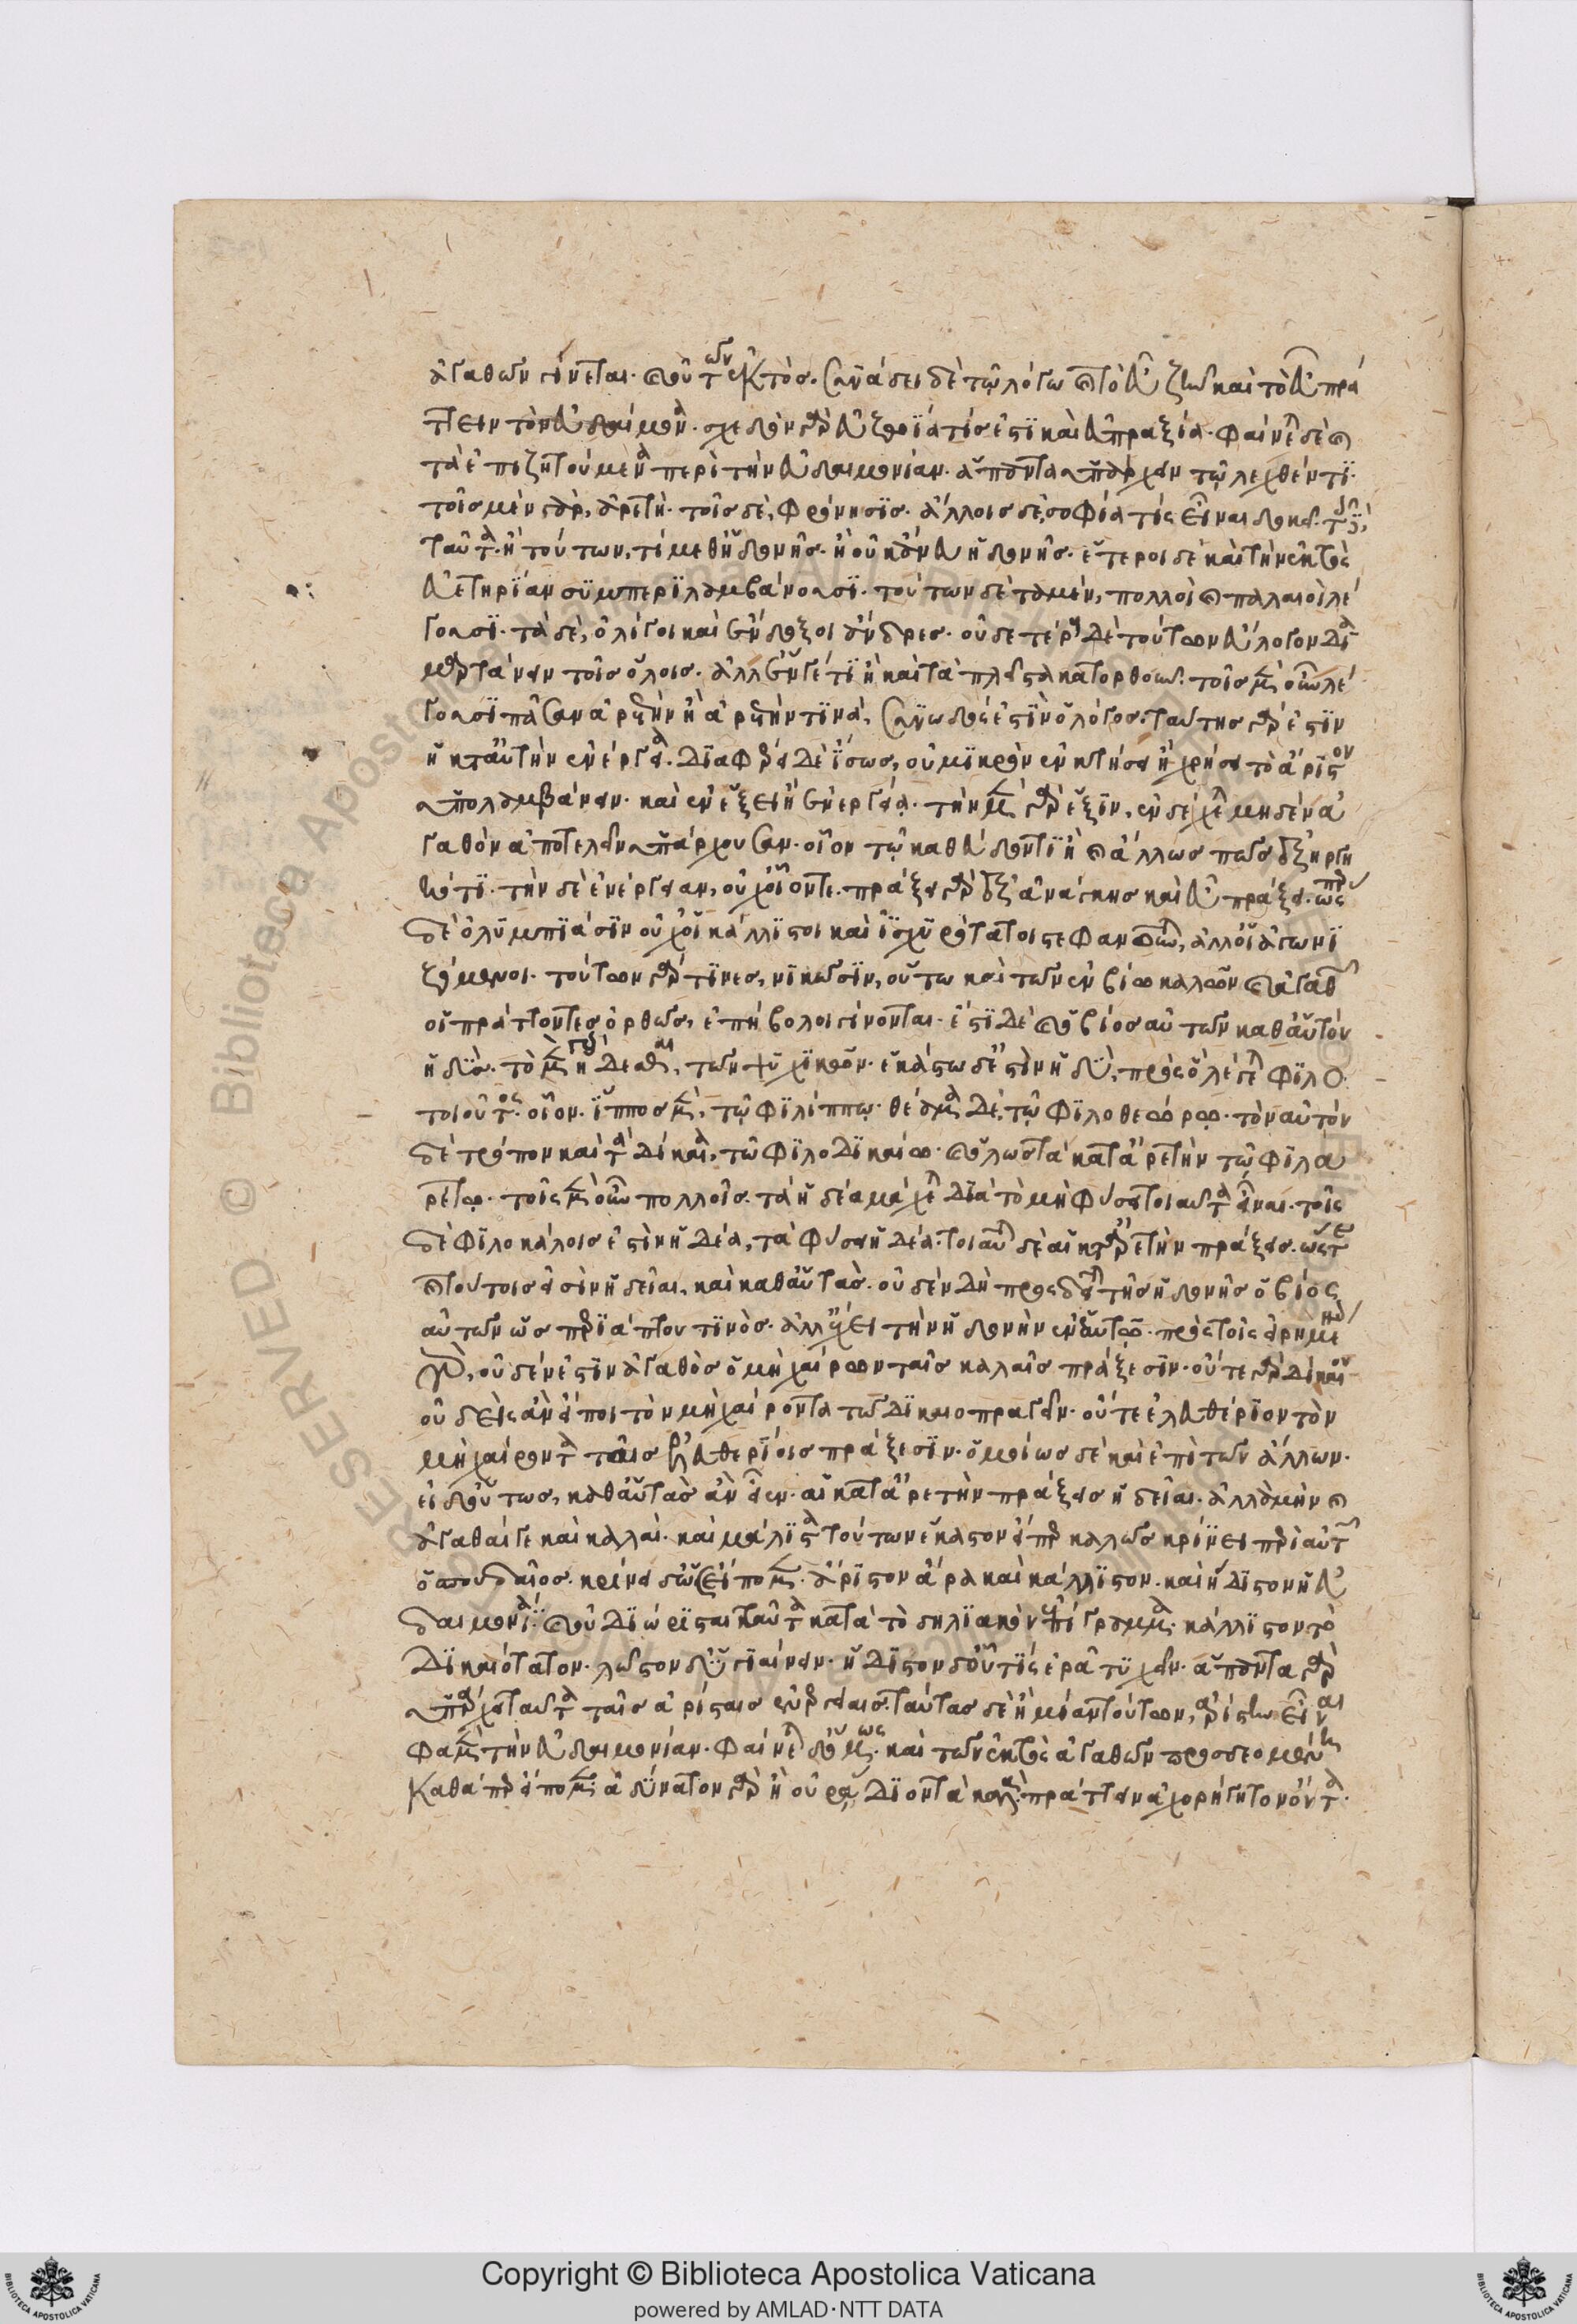 ἀγαθῶν γίνεται. καὶ οὐ τῶν ἐκτός. συνάδει δὲ τῷ λόγῳ καὶ τὸ εὖ ζῆν καὶ τὸ εὖ πρά
ττειν τὸν εὐδαίμονα. σχεδὸν γὰρ εὐζωΐα τίς ἐστι καὶ εὐπραξία. φαίνεται δὲ καὶ
τὰ ἐπιζητούμενα περὶ τὴν εὐδαιμονίαν. ἅπαντα ὑπάρχειν τῷ λεχθέντι.
τοῖς μὲν γὰρ, ἀρετὴ. τοῖς δὲ, φρόνησις. ἄλλοις δὲ, σοφία τίς εἶναι δοκεῖ. τοῖς δὲ,
ταῦτα. ἢ τούτων, τί μεθ' ἡδονῆς. ἢ οὐκ ἄνευ ἡδονῆς. ἕτεροι δὲ καὶ τὴν ἐκτὸς
εὐετηρίαν συμπεριλαμβάνουσι. τούτων δὲ τὰ μὲν, πολλοὶ καὶ παλαιοὶ λέ
γουσι. τὰ δὲ, ὀλίγοι καὶ ἔνδοξοι ἄνδρες. οὐδετέρους δὲ τούτων εὔλογον δια
μαρτάνειν τοῖς ὅλοις. ἀλλ' ἕν γέ τι ἢ καὶ τὰ πλεῖστα κατορθοῦν. τοῖς μὲν οὖν λέ
γουσι πᾶσαν ἀρετὴν ἢ ἀρετήν τινα, συνῳδός ἐστιν ὁ λόγος. ταύτης γάρ ἐστιν
ἡ κατ' αὐτὴν ἐνέργεια. διαφέρει δὲ ἴσως, οὐ μικρὸν ἐν κτήσει ἢ χρήσει τὸ ἄριστον
ὑπολαμβάνειν. καὶ ἐν ἕξει ἢ ἐνεργείᾳ. τὴν μὲν γὰρ ἕξιν, ἐνδέχεται μηδὲν ἀ
γαθὸν ἀποτελεῖν ὑπάρχουσαν. οἷον τῷ καθεύδοντι ἢ καὶ ἄλλως πως ἐξηργη
κότι. τὴν δὲ ἐνέργειαν, οὐχ οἷόν τε. πράξει γὰρ ἐξ ἀνάγκης καὶ εὖ πράξει. ὥσπερ
δὲ ὀλυμπιάσιν οὐχ οἱ κάλλιστοι καὶ ἰσχυρότατοι στεφανοῦνται, ἀλλ' οἱ ἀγωνι
ζόμενοι. τούτων γάρ τινες, νικῶσιν, οὕτω καὶ τῶν ἐν βίῳ καλῶν καὶ ἀγαθῶν
οἱ πράττοντες ὀρθῶς, ἐπήβολοι γίνονται. ἔστι δὲ καὶ ὁ βίος αὐτῶν καθ' αὑτὸν
ἡδύς. τὸ μὲν γὰρ ἥδεσθαι, τῶν ψυχικῶν. ἑκάστῳ δ' ἐστὶν ἡδύ, πρὸς ὃ λέγεται φιλο
τοιοῦτος. οἷον. ἵππος μὲν, τῷ φιλίππῳ. θέαμα δὲ, τῷ φιλοθεώρῳ. τὸν αὐτὸν
δὲ τρόπον καὶ τὰ δίκαια, τῷ φιλοδικαίῳ. καὶ ὅλως τὰ κατ' ἀρετὴν τῷ φιλα
ρέτῳ. τοῖς μὲν οὖν πολλοῖς. τὰ ἡδέα μάχεται διὰ τὸ μὴ φύσει τοιαῦτα εἶναι. τοῖς
δὲ φιλοκάλοις ἐστὶν ἡδέα, τὰ φύσει ἡδέα. τοιαῦται δὲ αἱ κατ' ἀρετὴν πράξεις. ὥστε
καὶ τούτοις εἰσὶν ἡδεῖαι, καὶ καθ' αὑτάς. οὐδὲν δὴ προσδεῖται τῆς ἡδονῆς ὁ βίος
αὐτῶν ὥσπερ περιάπτου τινός. ἀλλ' ἔχει τὴν ἡδονὴν ἐν ἑαυτῷ. πρὸς τοῖς εἰρημένοις
γὰρ, οὐδέν ἐστιν ἀγαθὸς ὁ μὴ χαίρων ταῖς καλαῖς πράξεσιν. οὔτε γὰρ δίκαιον
οὐδεὶς ἂν εἴποι τὸν μὴ χαίροντα τῷ δικαιοπραγεῖν. οὔτε ἐλευθέριον τὸν
μὴ χαίροντα ταῖς ἐλευθερίοις πράξεσιν. ὁμοίως δὲ καὶ ἐπὶ τῶν ἄλλων.
εἰ δ' οὕτως, καθ' αὑτὰς ἂν εἶεν. αἱ κατ' ἀρετὴν πράξεις ἡδεῖαι. ἀλλὰ μὴν καὶ
ἀγαθαί γε καὶ καλαί. καὶ μάλιστα τούτων ἕκαστον εἴπερ καλῶς κρίνει περὶ αὐτῶν
ὁ σπουδαῖος. κρίνει δ' ὡς εἴπομεν. ἄριστον ἄρα καὶ κάλλιστον. καὶ ἥδιστον ἡ εὐ
δαιμονία. καὶ οὐ διώρισται ταῦτα κατὰ τὸ δηλιακὸν ἐπίγραμμα. κάλλιστον τὸ
δικαιότατον. λῷστον δ' ὑγιαίνειν. ἥδιστον δ' οὗ τις ἐρᾷ τυχεῖν. ἅπαντα γὰρ
ὑπάρχει ταῦτα ταῖς ἀρίσταις ἐνεργείαις. ταύτας δὲ ἢ μίαν τούτων, ἀρίστην εἶναι
φαμὲν τὴν εὐδαιμονίαν. φαίνεται δ' ὅμως. καὶ τῶν ἐκτὸς ἀγαθῶν προσδεομένη
καθάπερ εἴπομεν. ἀδύνατον γὰρ ἢ οὐ ῥᾴδιον τὰ καλὰ πράττειν ἀχορήγητον ὄντα.